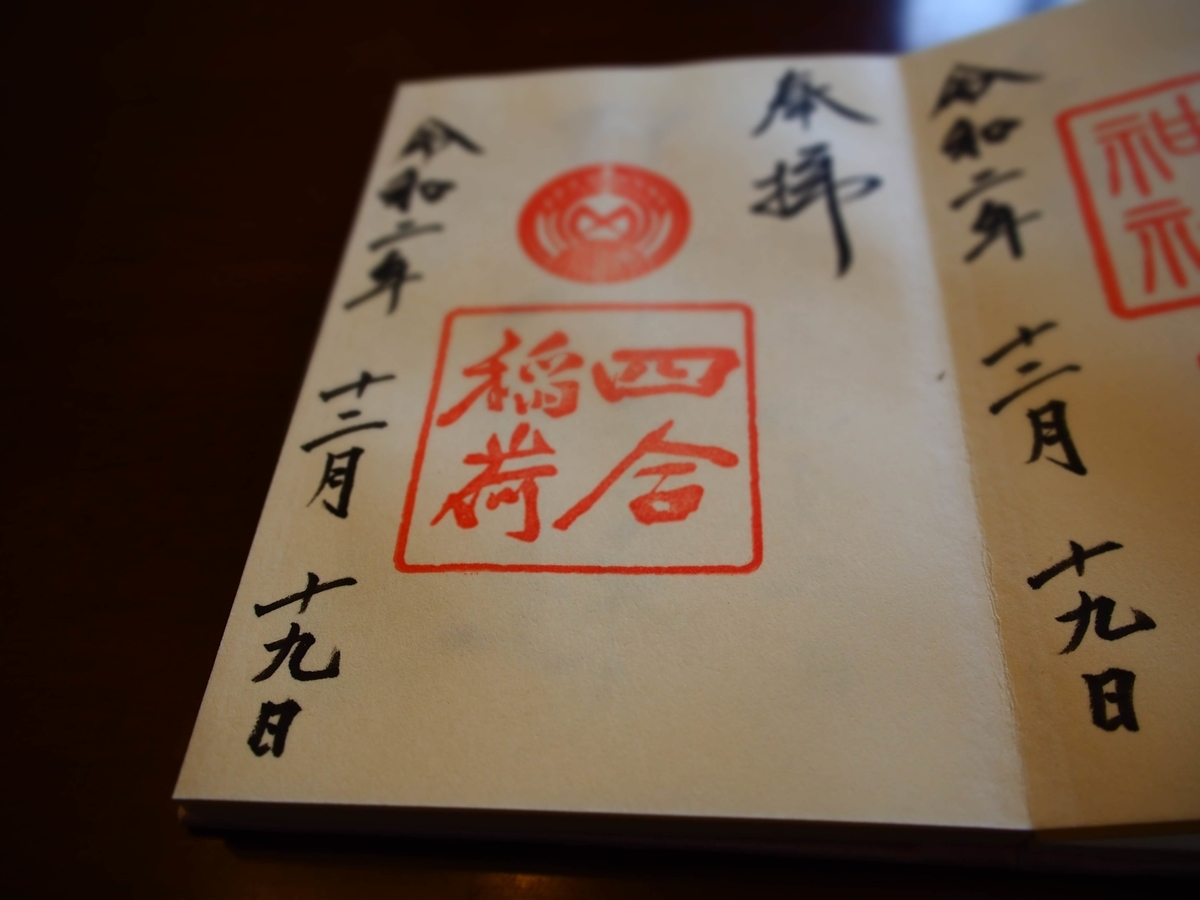 神社
令和二年 十二月 十九日
奉拝
四合
稲荷
令和二年 十二月 十九日